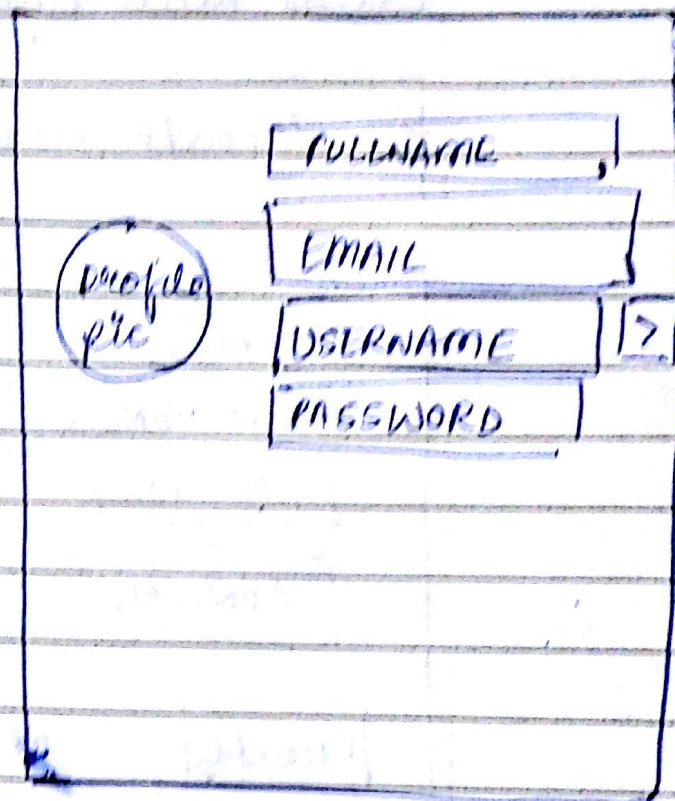 FULLNAME
EMAIL
profile
pic
USERNAME >
PASSWORD